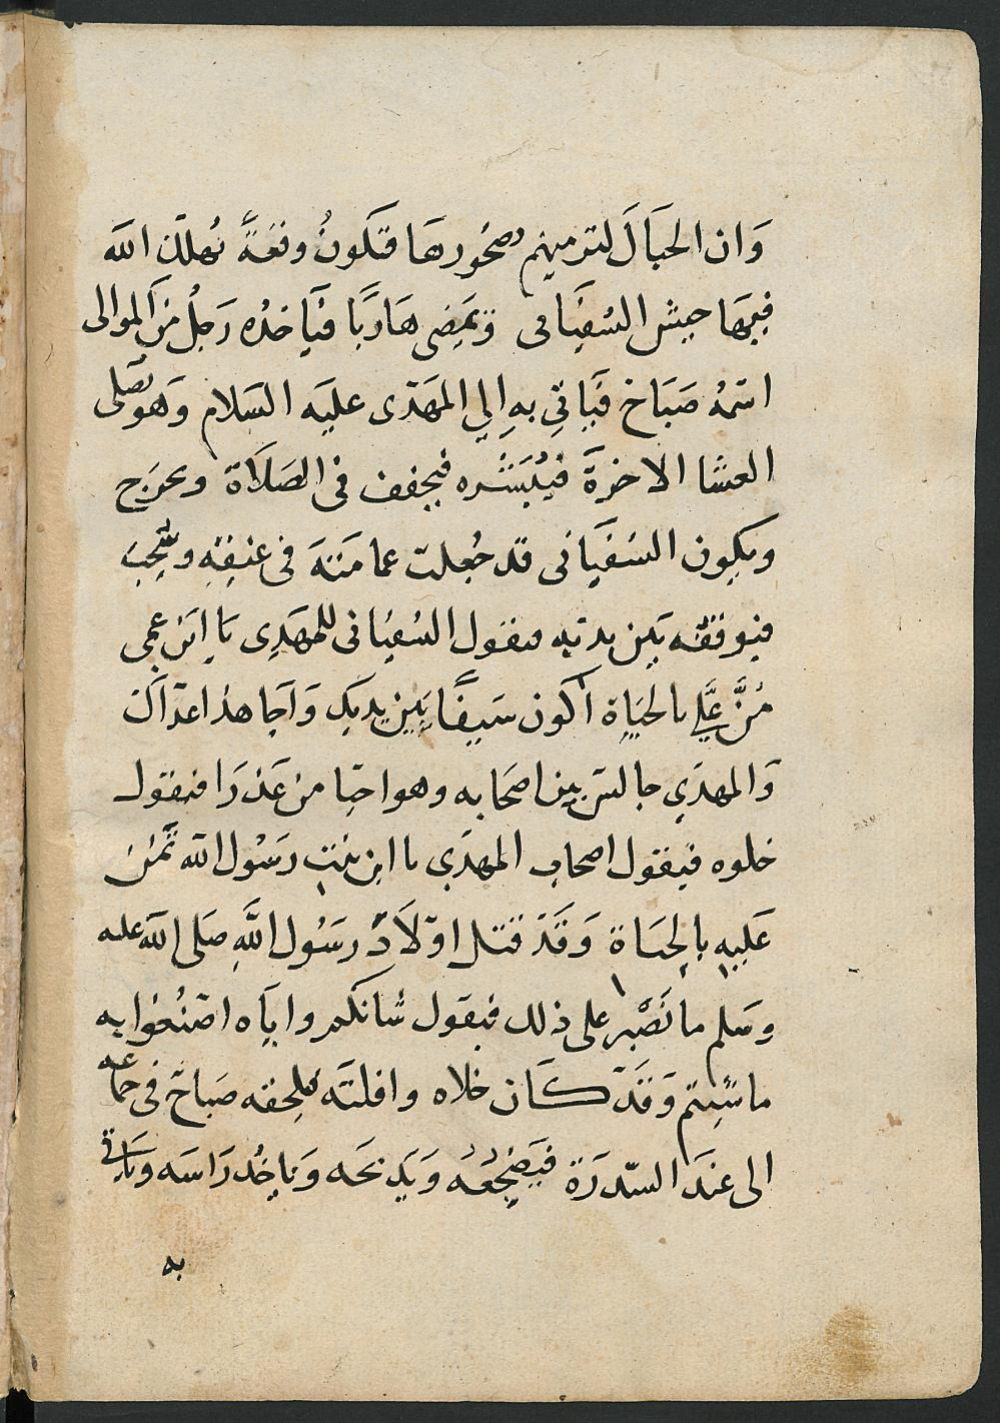 وَان الجبَالَ لترميهم بصخُورهَا فتكونُ وقعَةً يُهلك الله
فيهَا جيش السُفيَانى وَيمَضِى هَاربًا فيَاخذه رَجلُ منَ الموالى
اسمُهُ صَبَاح فيَاتى بهِ إلي المهَدى عليَه السَلام وَهو يصَلى
العشا الاخرَةَ فيُبَشره فيخفف فى الصَلاَة ويخرَج
ويكون السُفيَانى قد جُعلت عمامَتهَ فى عنقِهِ ويسُحِبَ
فيوقفه بَين يديه فيقول السُفيانى للمهَدِى يَا ابَن عمى
مُنَّ عَليَّ بالحَيَاة اكون سَيفًا بَين يديك وَاجَاهدُ اعدَاك
وَالمهدَي جالس بين اصَحَابه وهو احيا من عَذرَا فيقول
خلوه فيقول اصحاب المهدَي يا ابن بنتِ رسَول الله تمَنن
عَليهِ بالحيَاة وَقَدَ قتل اوَلاَد رسَوُل اللَّهِ صَلى الله عليه
وسَلم ما نَصْبر على ذلك فيقول شانكم وايَاه اصَنعُوا به
ماشِيتم وَقدَ كَان خلاه وافلتَه فيلحِقه صَباح فى جماعه
الى عندَ السّدرَة فيَضجعُهُ وَيَذبحَه وَياخُذ رَاسَه وياتى
به